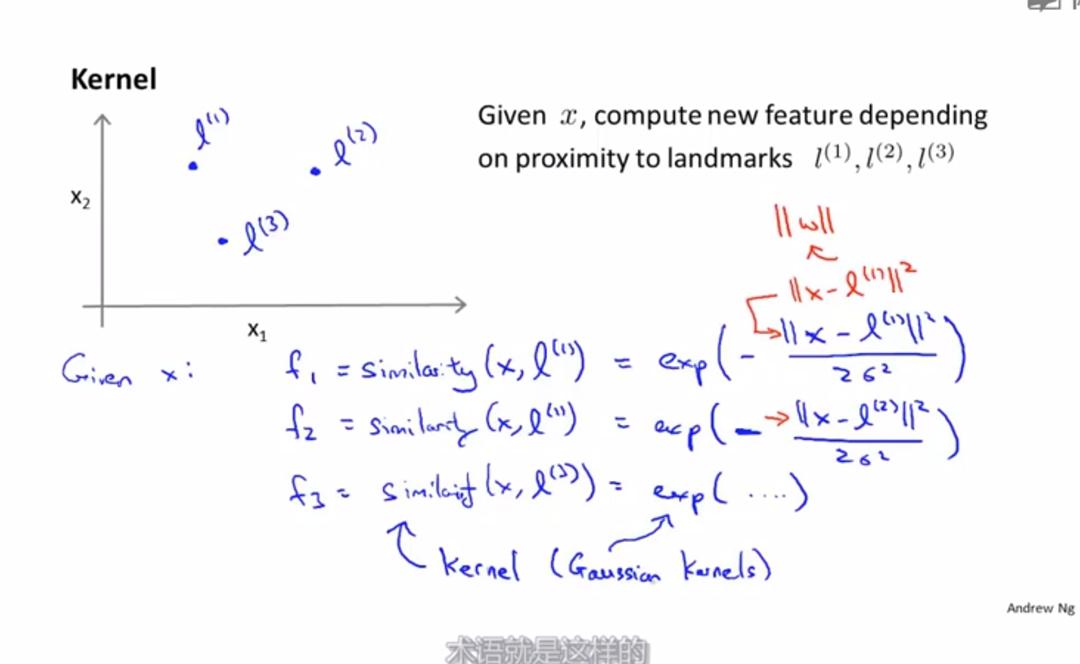 Kernel
l^(1)
l^(2)
l^(3)
x₂
x₁
Given x, compute new feature depending
on proximity to landmarks l^(1), l^(2), l^(3)
||w||
||x - l^(1)||²
Given x:
f₁ = similarity (x, l^(1)) = exp( - ||x - l^(1)||² / 2σ² )
f₂ = similarity (x, l^(1)) = exp( - ||x - l^(2)||² / 2σ² )
f₃ = similarity (x, l^(3)) = exp( .... )
Kernel (Gaussian kernels)
Andrew Ng
术语就是这样的